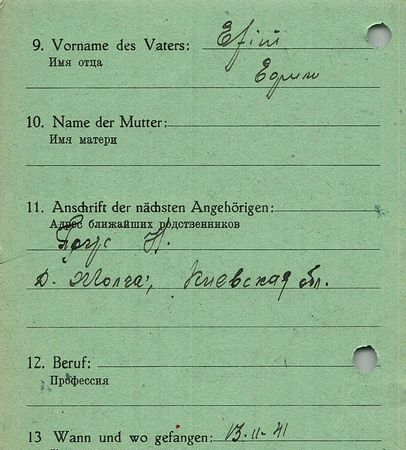 9. Vorname des Vaters: Efim
Имя отца
Ефим
10. Name der Mutter:
Имя матери
11. Anschrift der nächsten Angehörigen:
Адрес ближайших родственников
Н.
д. Киевская обл.
12. Beruf:
Профессия
13 Wann und wo gefangen: 13-11-41